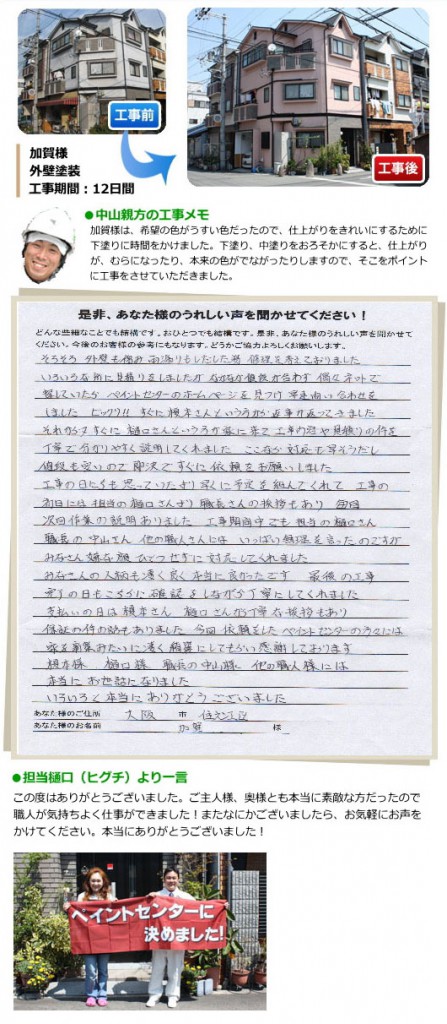 工事前
工事後
加賀様
外壁塗装
工事期間：12日間
●中山親方の工事メモ
加賀様は、希望の色がうすい色だったので、仕上がりをきれいにするために
下塗りに時間をかけました。下塗り、中塗りをおろそかにすると、仕上がり
が、むらになったり、本来の色がでながったりしますので、そこをポイント
に工事をさせていただきました。
是非、あなた様のうれしい声を聞かせてください！
どんな些細なことでも結構です。おひとつでも結構です。是非、あなた様のうれしい声を聞かせて
ください。今後のお客様の参考にもなります。どうかご協力よろしくお願いします。
そろそろ 外壁も傷み 雨漏りもしだした為 修理を考えておりました
いろいろな所に見積りをしましたが なかなか値段が合わず 偶々ネットで
探していたら ペイントセンターのホームページを見つけ 早速問い合わせを
しました ビックリ!! すぐに 榎本さんというかたから返事が返ってきました
それから すぐに 樋口さんというかたが家に来て 工事内容や見積りの件を
丁寧で分かりやすく説明してくれました ここなら対応も早そうだし
値段も安いので 即決ですぐに 依頼をお願いしました
工事の日にちも 思っていたより早くに予定を組んでくれて 工事の
初日には 担当の樋口さんより 職長さんの挨拶もあり 毎回
次回作業の説明ありました 工事期間中でも 担当の樋口さん
職長の 中山さん 他の職人さんには いっぱい無理を言ったのですが
みなさん 嫌な顔 ひとつせずに 対応してくれました
みなさんの人柄も凄く良く本当に良かったです 最後の工事
完了の日もこちらに 確認をしながら丁寧にしてくれました
支払いの日は 榎本さん 樋口さんから丁寧な挨拶もあり
保証の件の話もありました 今回 依頼をした ペイントセンターの方々には
家を新築みたいに凄く 綺麗に してもらい感謝しております
榎本様 樋口様 職長の中山様 他の職人様には
本当に お世話になりました
いろいろと本当に ありがとうございました
あなた様のご住所 大阪 市 住之江区
あなた様のお名前 加賀 様
●担当樋口（ヒグチ）より一言
この度はありがとうございました。ご主人様、奥様とも本当に素敵な方だったので
職人が気持ちよく仕事ができました！またなにかございましたら、お気軽にお声を
かけてください。本当にありがとうございました！
ペイントセンターに
決めました!